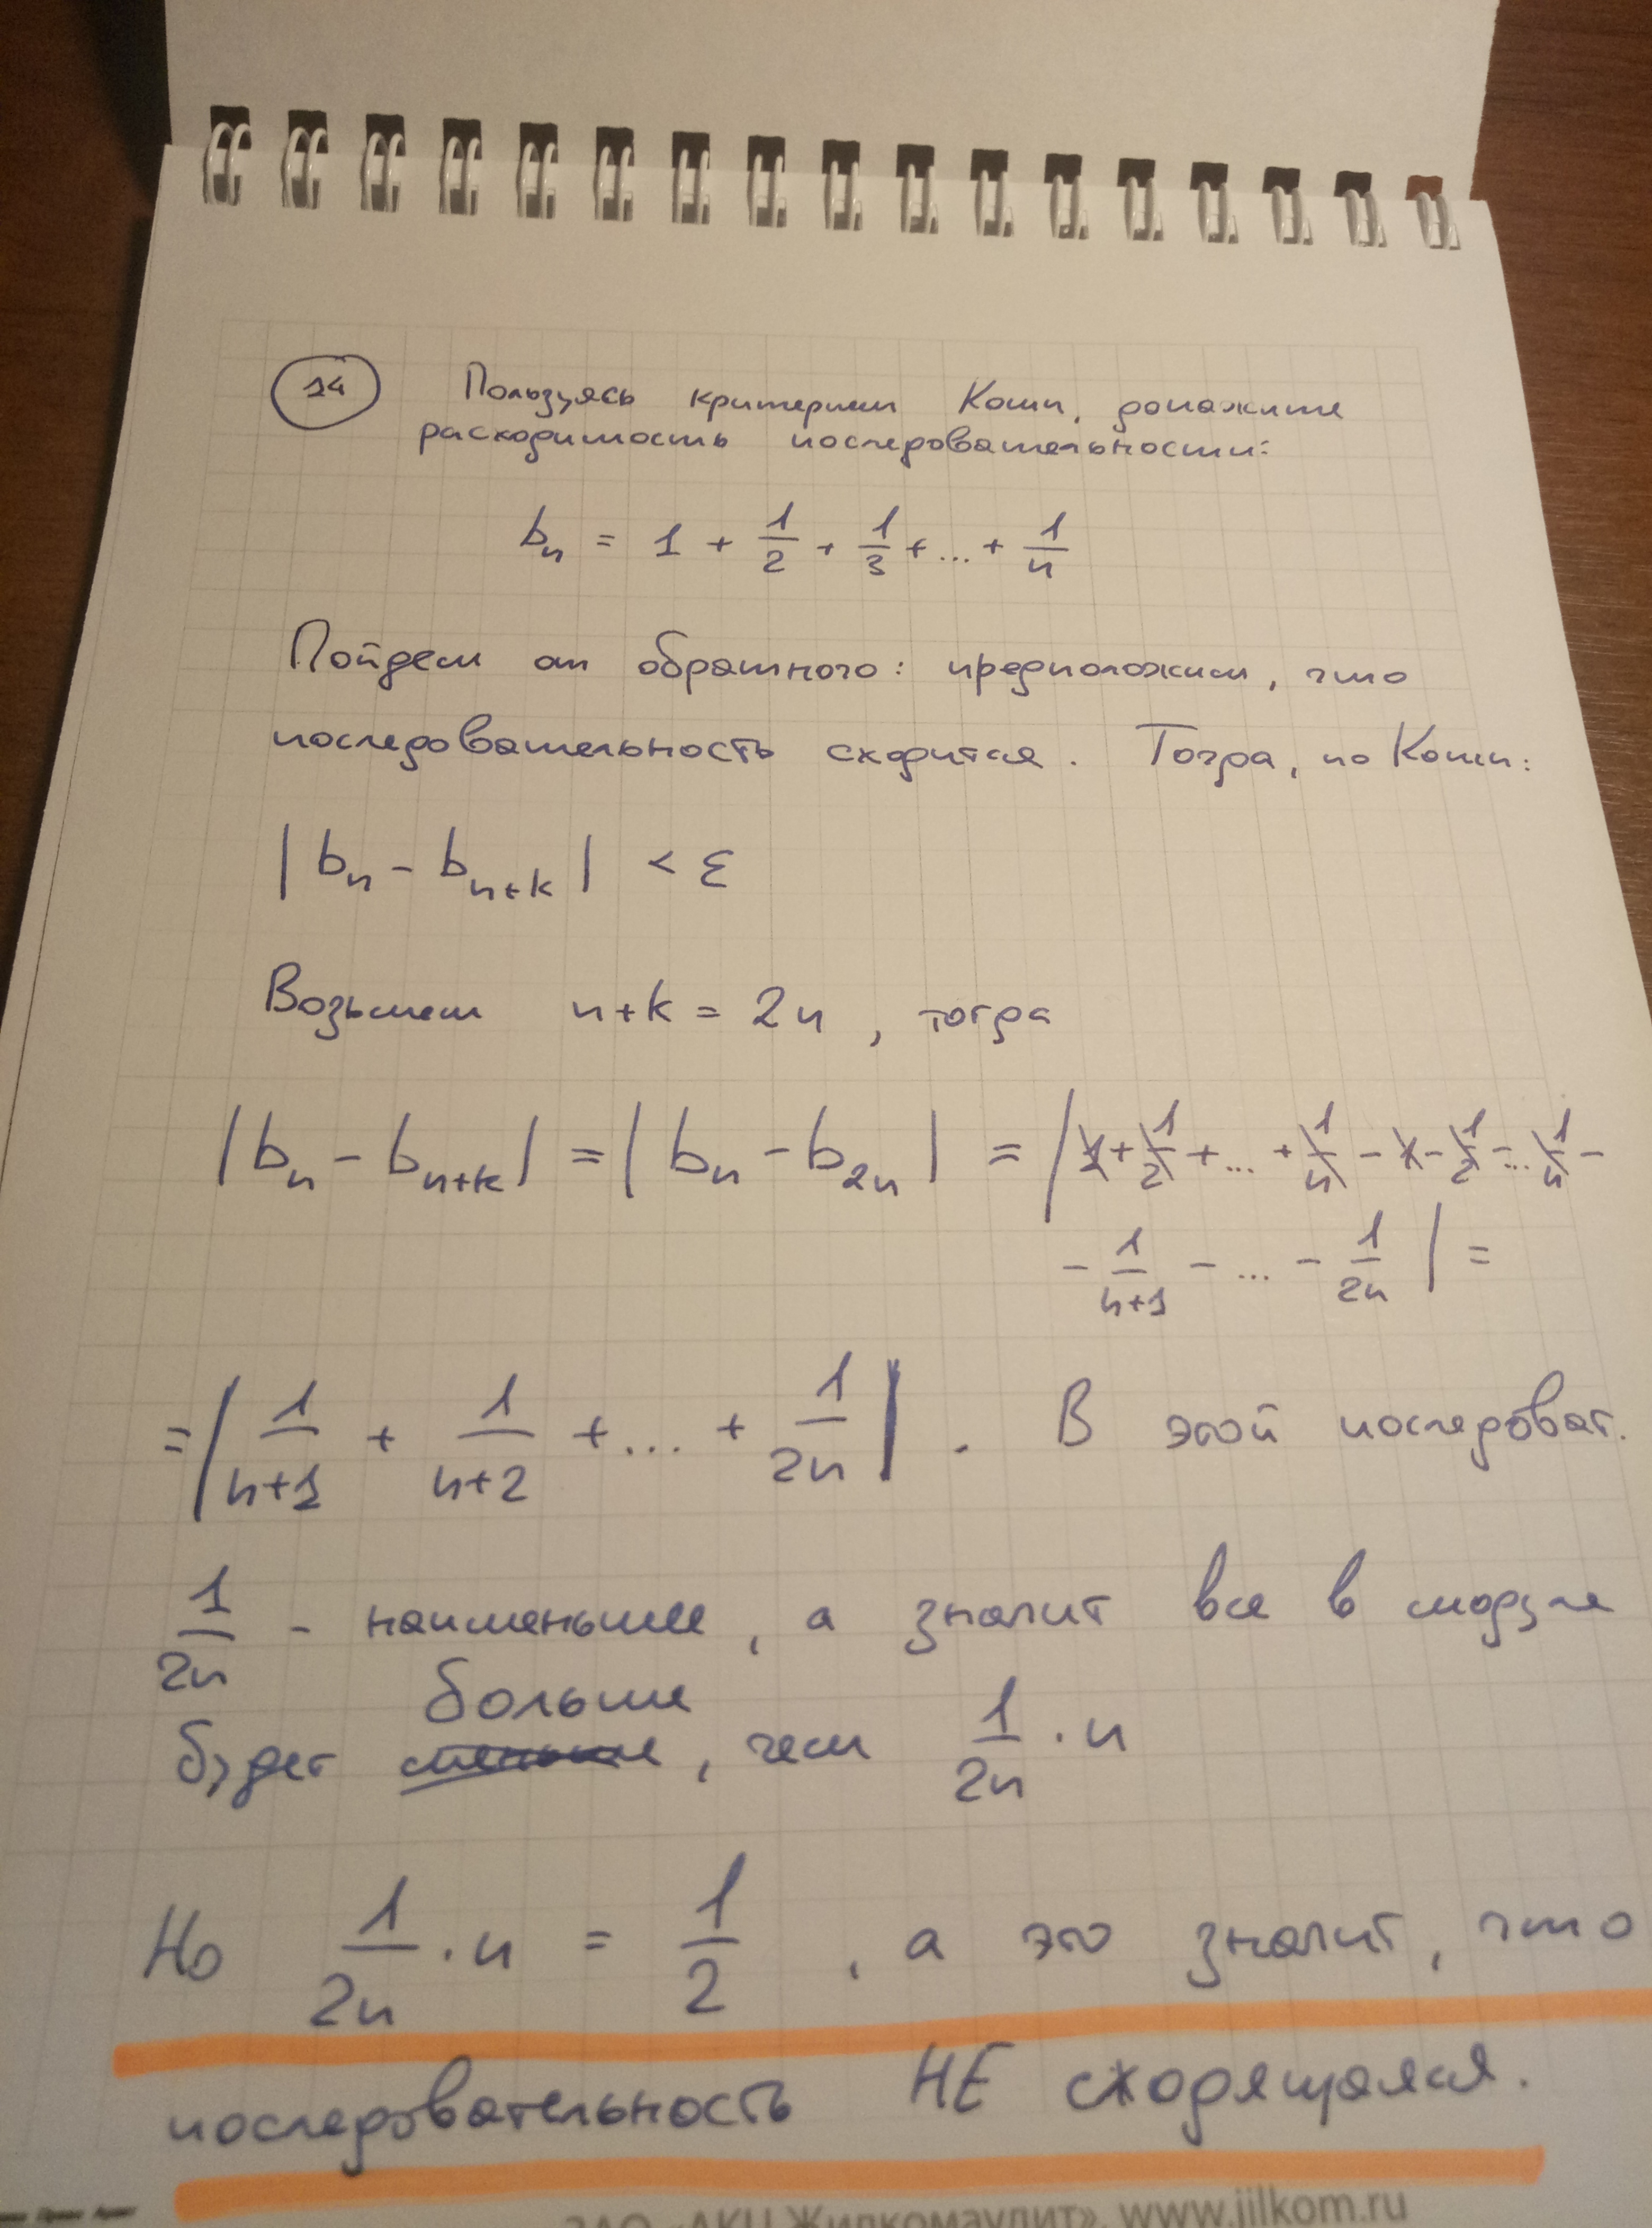 14 Пользуясь критерием Коши, докажите
расходимость последовательности:
bₙ = 1 + 1/2 + 1/3 + ... + 1/n
Пойдем от обратного: предположим, что
последовательность сходится. Тогда, по Коши:
|bₙ - bₙ₊ₖ| < ε
Возьмем n+k = 2n, тогда
|bₙ - bₙ₊ₖ| = |bₙ - b₂ₙ| = |1 + 1/2 + ... + 1/n - 1 - 1/2 - ... 1/n -
- 1/(n+1) - ... - 1/(2n)| =
= |1/(n+1) + 1/(n+2) + ... + 1/(2n)|. В этой последоват.
1/(2n) - наименьшее, а значит все в модуле
больше
будет меньше, чем 1/(2n) · n
Но 1/(2n) · n = 1/2, а это значит, что
последовательность НЕ сходящаяся.
ЗАО «АКЦ Жилкомаудит», www.jilkom.ru